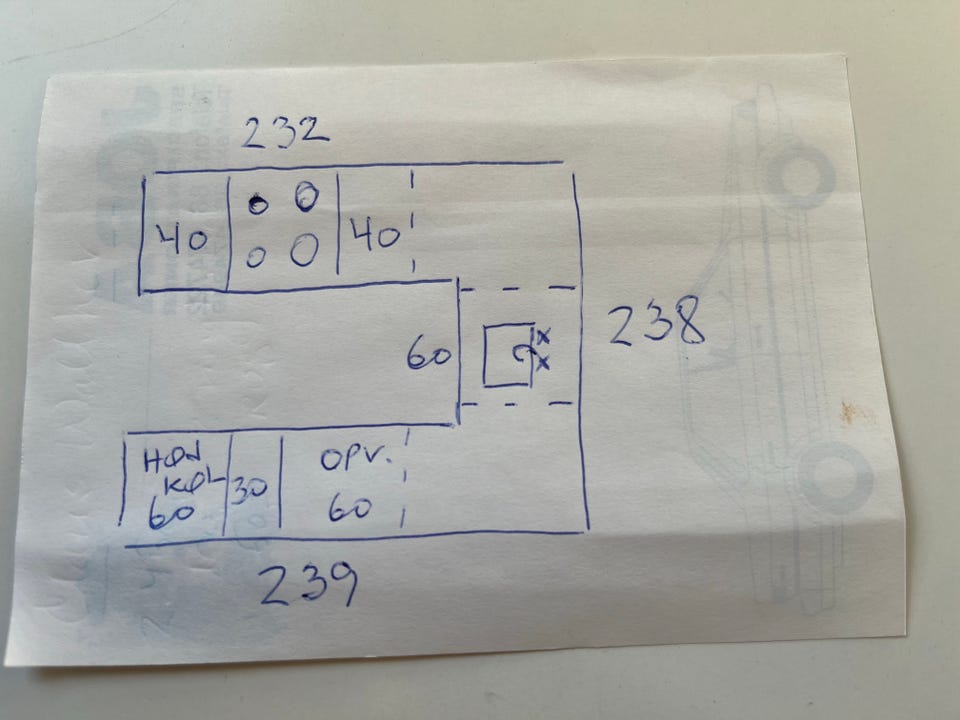 232
40
40
60
238
HØJ
KØL
60
30
OPV.
60
239